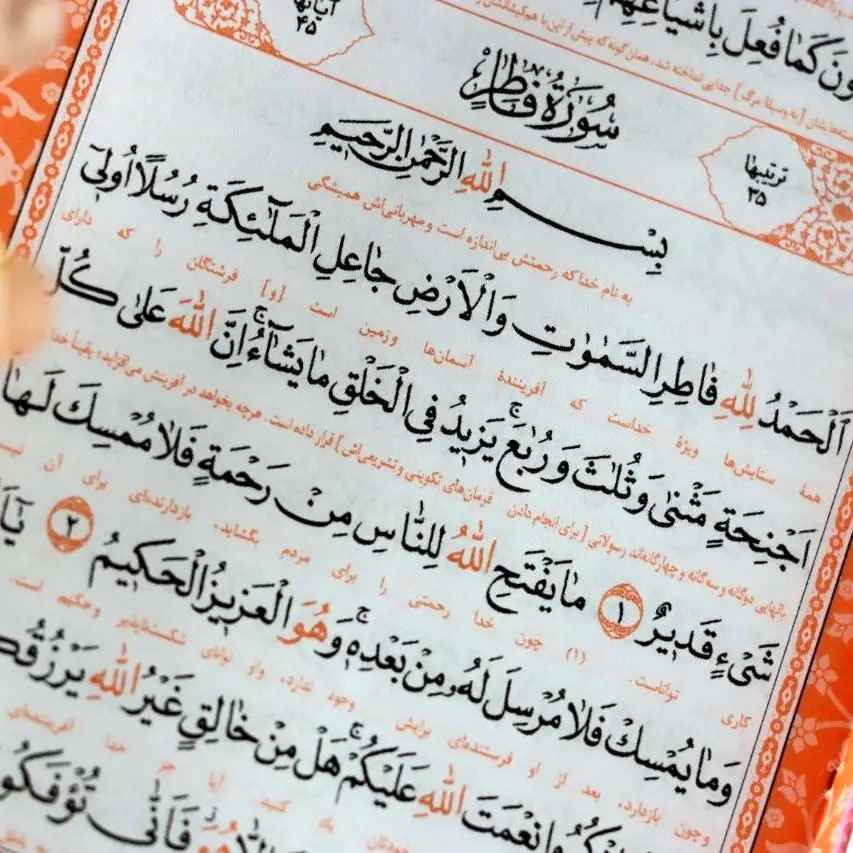 ونَ كَمَا فُعِلَ بِاَشْيَاعِهِمْ
آیاتها ۴۵
سُورَةُ فَاطِرٍ
ترتيبها ۳۵
بِسْمِ اللهِ الرَّحْمٰنِ الرَّحِيمِ
به نام خدا که رحمتش بی‌اندازه است و مهربانی‌اش همیشگی
اَلْحَمْدُ لِلّٰهِ فَاطِرِ السَّمٰوٰتِ وَالْاَرْضِ جَاعِلِ الْمَلٰٓئِكَةِ رُسُلًا اُولٓي
همهٔ ستایش‌ها ویژهٔ خداست که آفرینندهٔ آسمان‌ها و زمین است [و] فرشتگان را که دارای
اَجْنِحَةٍ مَثْنٰى وَثُلٰثَ وَرُبٰعَ ۚ يَزِيدُ فِي الْخَلْقِ مَا يَشَآءُ ۚ اِنَّ اللهَ عَلٰى كُلِّ
بالهایی دوگانه و سه‌گانه و چهارگانه‌اند رسولانی [برای انجام دادن فرمان‌های تکوینی و تشریعی‌اش] قرار داده است. هرچه بخواهد در آفرینش می‌افزاید؛ یقیناً خدا
شَيْءٍ قَدِيرٌ ١ مَا يَفْتَحِ اللهُ لِلنَّاسِ مِنْ رَحْمَةٍ فَلَا مُمْسِكَ لَهَا
کاری تواناست. (۱) چون خدا رحمتی را برای مردم بگشاید، بازدارنده‌ای برای آن
وَمَا يُمْسِكْ فَلَا مُرْسِلَ لَهُ مِنْ بَعْدِهِ ۚ وَهُوَ الْعَزِيزُ الْحَكِيمُ ٢ يَٓا
و چون بازدارد، بعد از او فرستنده‌ای برایش وجود ندارد، و او توانای شکست‌ناپذیر و حکیم است.
نِعْمَتَ اللهِ عَلَيْكُمْ ۚ هَلْ مِنْ خَالِقٍ غَيْرُ اللهِ يَرْزُقُكُ
هُوَ فَاَنّٰى تُؤْفَكُو